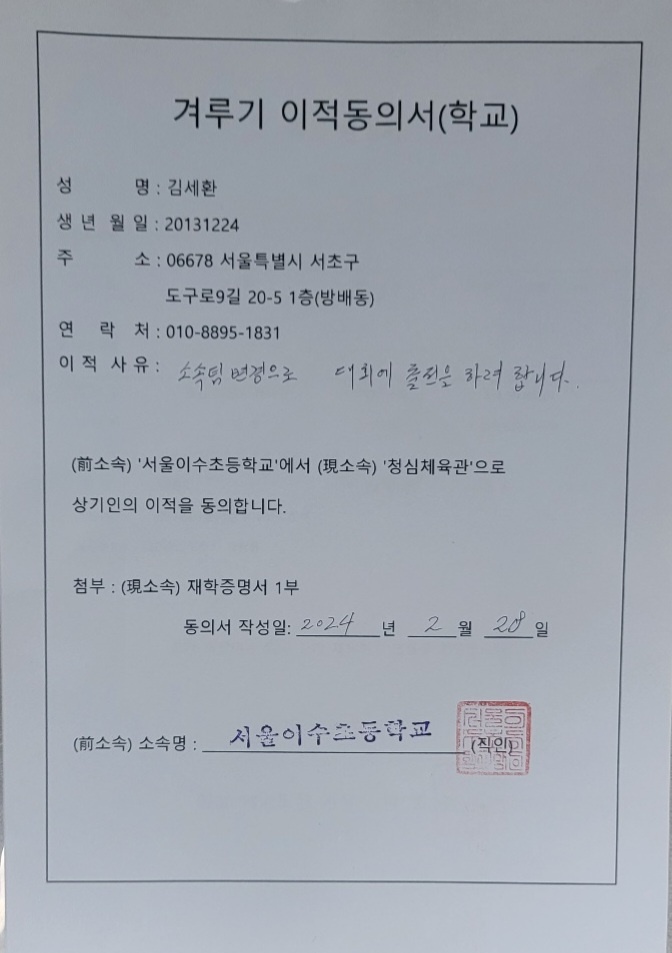 겨루기 이적동의서(학교)
성 명 : 김세환
생 년 월 일 : 20131224
주 소 : 06678 서울특별시 서초구
도구로9길 20-5 1층(방배동)
연 락 처 : 010-8895-1831
이 적 사 유 : 소속팀 변경으로 대회에 출전을 하려 합니다.
(前소속) '서울이수초등학교'에서 (現소속) '청심체육관'으로
상기인의 이적을 동의합니다.
첨부 : (現소속) 재학증명서 1부
동의서 작성일: 2024 년 2 월 28 일
(前소속) 소속명 : 서울이수초등학교 (직인)